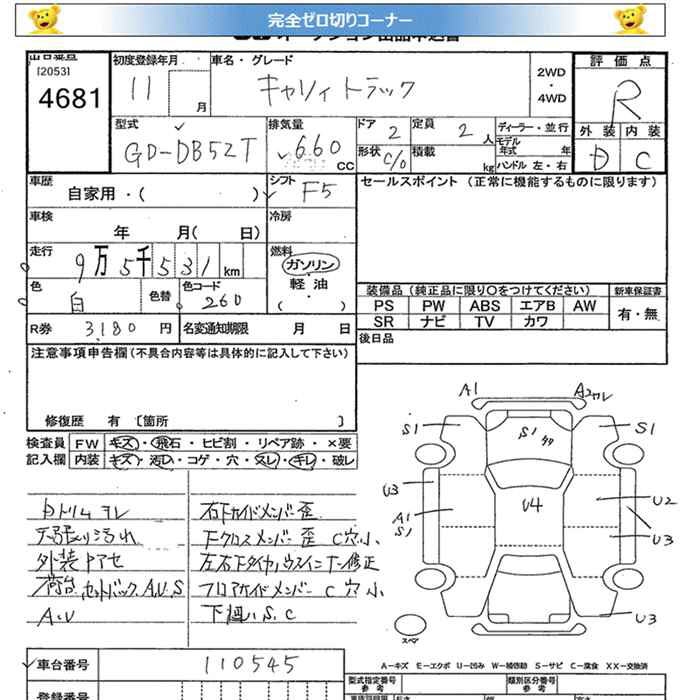 完全ゼロ切りコーナー
[2053]
4681
初度登録年月
11
月
車名・グレード
キャリィトラック
2WD
・
4WD
評価点
R
外装 内装
D C
型式
GD-DB52T
排気量
660
CC
ドア 2
定員 2 人
形状 C/O
積載 kg
ディーラー・並行
モデル年式 年
ハンドル 左・右
車歴
自家用・( )
シフト F5
セールスポイント (正常に機能するものに限ります)
車検
年 月( 日)
冷房
走行
9万5千531km
燃料
ガソリン
軽油
・
( )
色
白
色替
色コード
260
装備品(純正品に限り〇をつけてください)
新車保証書
PS PW ABS エアB AW
SR ナビ TV カワ
有・無
R券 3180 円
名変通知期限 月 日
後日品
注意事項申告欄(不具合内容等は具体的に記入して下さい)
修復歴 有 [箇所 ]
検査員 FW キズ・飛石・ヒビ割・リペア跡・×要
記入欄 内装 キズ・汚レ・コゲ・穴・スレ・キレ・破レ
内トリムヨレ
天張り汚れ
外装アセ
荷台 セットバック A,U,S
A・U
右下サイドメンバー歪
下クロスメンバー歪 C穴小
左右下タイヤハウスインナー修正
フロアサイドメンバー C穴小
下廻りS.C
A1
A2カレ
S1
S1
S1
U3
U4
U2
A1
S1
U3
U3
スペア
A-キズ E-エクボ U-凹み W-補修跡 S-サビ C-腐食 XX-交換済
車台番号 110545
型式指定番号
参考
類別区分番号
参考
登録番号